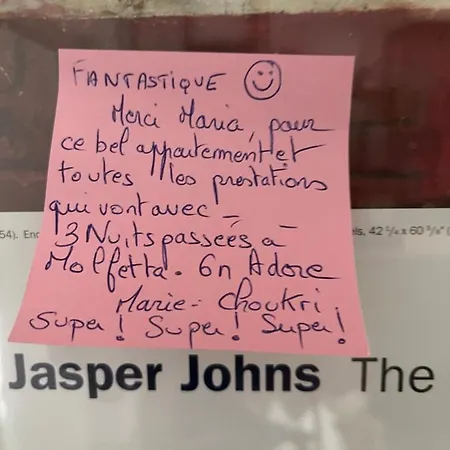 FANTASTIQUE
Merci Maria, pour
ce bel appartement et
toutes les prestations
qui vont avec -
3 Nuits passées à
Molfetta. On Adore
Marie - Choukri
Super! Super! Super!
54). Enc
els, 42 1/4 x 60 5/8" (
Jasper Johns The